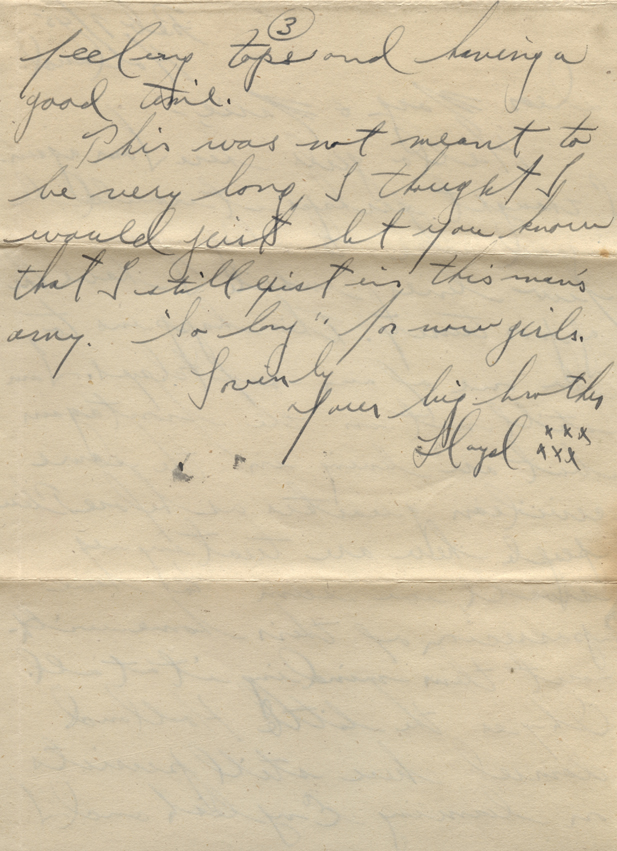 3
feeling tops and having a
good time.
This was not meant to
be very long, I thought I
would just let you know
that I still exist in this man's
army. "So long" for now girls.
Lovingly
Your big brother
Lloyd xxx
xxx